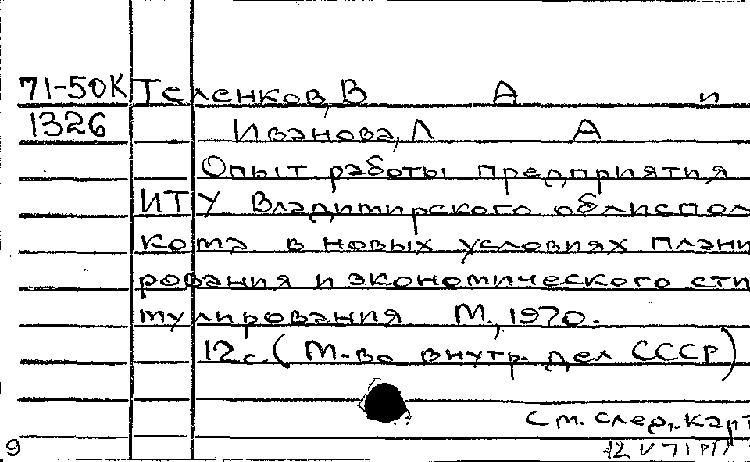 71-50К Теленков, В А и
1326 Иванова, Л А
Опыт работы предприятия
ИТУ Владимирского облиспол
кома в новых условиях плани
рования и экономического сти
мулирования М., 1970.
12 с. (М-во внутр. дел СССР)
См. след. карт
9 12 V 71